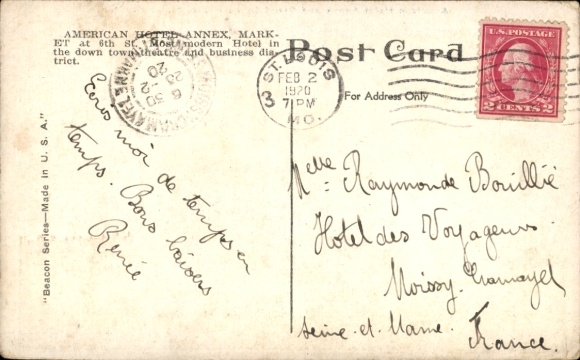 AMERICAN HOTEL ANNEX, MARK-
ET at 6th St. Most modern Hotel in
the down town theatre and business dis-
trict.
Post Card
For Address Only
ST. LOUIS
FEB 2
1920
7 PM
MO.
3
U.S. POSTAGE
2 CENTS 2
"Beacon Series—Made in U. S. A."
Ecris moi de temps en
temps. Bons baisers
Renée
Melle Raymonde Bouillié
Hotel des Voyageurs
Moissy-Cramayel
Seine-et-Marne.
France.